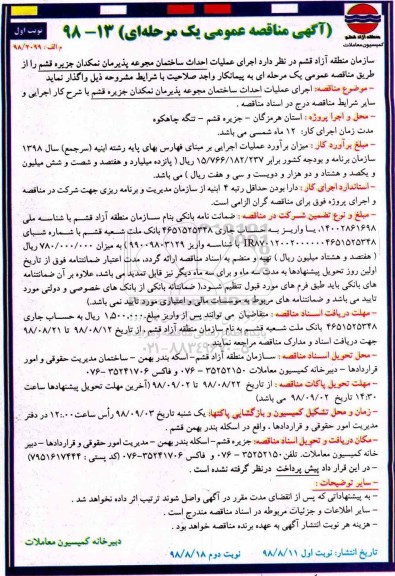 منطقه آزاد قشم
کمیسیون معاملات
(آگهی مناقصه عمومی یک مرحله‌ای) ۱۳- ۹۸
نوبت اول
م الف: ۹۸/۲۰۹۹
سازمان منطقه آزاد قشم در نظر دارد اجرای عملیات احداث ساختمان مجموعه پذیرمان نمکدان جزیره قشم را از
طریق مناقصه عمومی یک مرحله ای به پیمانکار واجد صلاحیت با شرایط مشروحه ذیل واگذار نماید
- موضوع مناقصه: اجرای عملیات احداث ساختمان مجموعه پذیرمان نمکدان جزیره قشم با شرح کار اجرایی و
سایر شرایط مناقصه درج در اسناد مناقصه .
- محل و اجرا پروژه : استان هرمزگان - جزیره قشم - تنگه چاهکوه
مدت زمان اجرای کار: ۱۲ ماه شمسی می باشد.
- مبلغ برآورد کار: میزان برآورد عملیات اجرایی بر مبنای فهارس بهای پایه رشته ابنیه (سرجمع) سال ۱۳۹۸
سازمان برنامه و بودجه کشور برابر ۱۵/۷۶۶/۱۸۲/۲۳۷ ریال ( پانزده میلیارد و هفتصد و شصت و شش میلیون
و یکصد و هشتاد و دو هزار و دویست و سی و هفت ریال ) می باشد.
- استاندارد اجرای کار: دارا بودن حداقل رتبه ۴ ابنیه از سازمان مدیریت و برنامه ریزی جهت شرکت در مناقصه
و اجرای پروژه فوق برای مناقصه گران الزامی است.
- مبلغ و نوع تضمین شرکت در مناقصه : ضمانت نامه بانکی بنام سازمان منطقه آزاد قشم با شناسه ملی
۱۴۰۰۲۸۶۱۶۹۸، یا واریز به حساب جاری ۴۶۵۱۵۲۵۳۴۸ بانک ملت شعبه قشم با شماره شبای
با شناسه واریز به میزان ۷۸۰/۰۰۰/۰۰۰ ریال
( هفتصد و هشتاد میلیون ریال ) تهیه و منضم به اسناد مناقصه ارائه گردد، مدت اعتبار ضمانتنامه فوق از تاریخ
اولین روز تحویل پیشنهادها به مدت سه ماه و برای سه ماه دیگر نیز قابل تمدید می باشد، علاوه بر آن ضمانتنامه
های بانکی باید طبق فرم های مورد قبول تنظیم شود.( ضمانتنامه بانکی از بانک های خصوصی و دولتی مورد
تایید می باشد و ضمانتنامه های مربوط به موسسات مالی و اعتباری مورد تایید نمی باشد.)
- مهلت دریافت اسناد مناقصه: متقاضیان می توانند پس از واریز مبلغ ۱/۵۰۰/۰۰۰ ریال به حساب جاری
۴۶۵۱۵۲۵۳۴۸ بانک ملت شعبه قشم به نام سازمان منطقه آزاد قشم ، از تاریخ ۹۸/۰۸/۱۲ تا ۹۸/۰۸/۲۱
جهت دریافت اسناد و مدارک مناقصه مراجعه نمایند
- محل تحویل اسناد مناقصه : سازمان منطقه آزاد قشم - اسکه بندر بهمن - ساختمان مدیریت حقوقی و امور
قراردادها - دبیرخانه کمیسیون معاملات ۳۵۲۵۲۱۵۰-۰۷۶ و فاکس ۳۵۲۴۱۷۰۶-۰۷۶
- مهلت تحویل پاکات مناقصه : از تاریخ ۹۸/۰۸/۲۲ تا ۹۸/۰۹/۰۲ (آخرین مهلت تحویل پیشنهادها ساعت
۱۴:۳۰ تاریخ ۹۸/۰۹/۰۲ می باشد)
- زمان و محل تشکیل کمیسیون و بازگشایی پاکتها: یک شنبه تاریخ ۹۸/۰۹/۰۳ رأس ساعت ۱۲:۰۰ در دفتر
مدیریت امور حقوقی و قراردادها ، واقع در اسکه بندر بهمن قشم .
- مکان دریافت و تحویل اسناد مناقصه: جزیره قشم - اسکله بندر بهمن - مدیریت امور حقوقی و قراردادها - دبیر
خانه کمیسیون معاملات. تلفن ۳۵۲۵۲۱۵۰-۰۷۶ و فاکس ۳۵۲۴۱۷۰۶-۰۷۶ (کد پستی : ۷۹۵۱۶۱۷۴۴۴)
- در این قرار داد پیش پرداخت درنظر گرفته نشده است .
- سایر توضیحات :
- به پیشنهاداتی که پس از انقضای مدت مقرر در آگهی واصل شوند ترتیب اثر داده نخواهد شد .
- سایر اطلاعات و جزئیات مربوطه در اسناد مناقصه مندرج است .
- هزینه هر نوبت انتشار آگهی به عهده برنده مناقصه خواهد بود .
دبیرخانه کمیسیون معاملات
تاریخ انتشار: نوبت اول ۹۸/۸/۱۱ نوبت دوم ۹۸/۸/۱۸